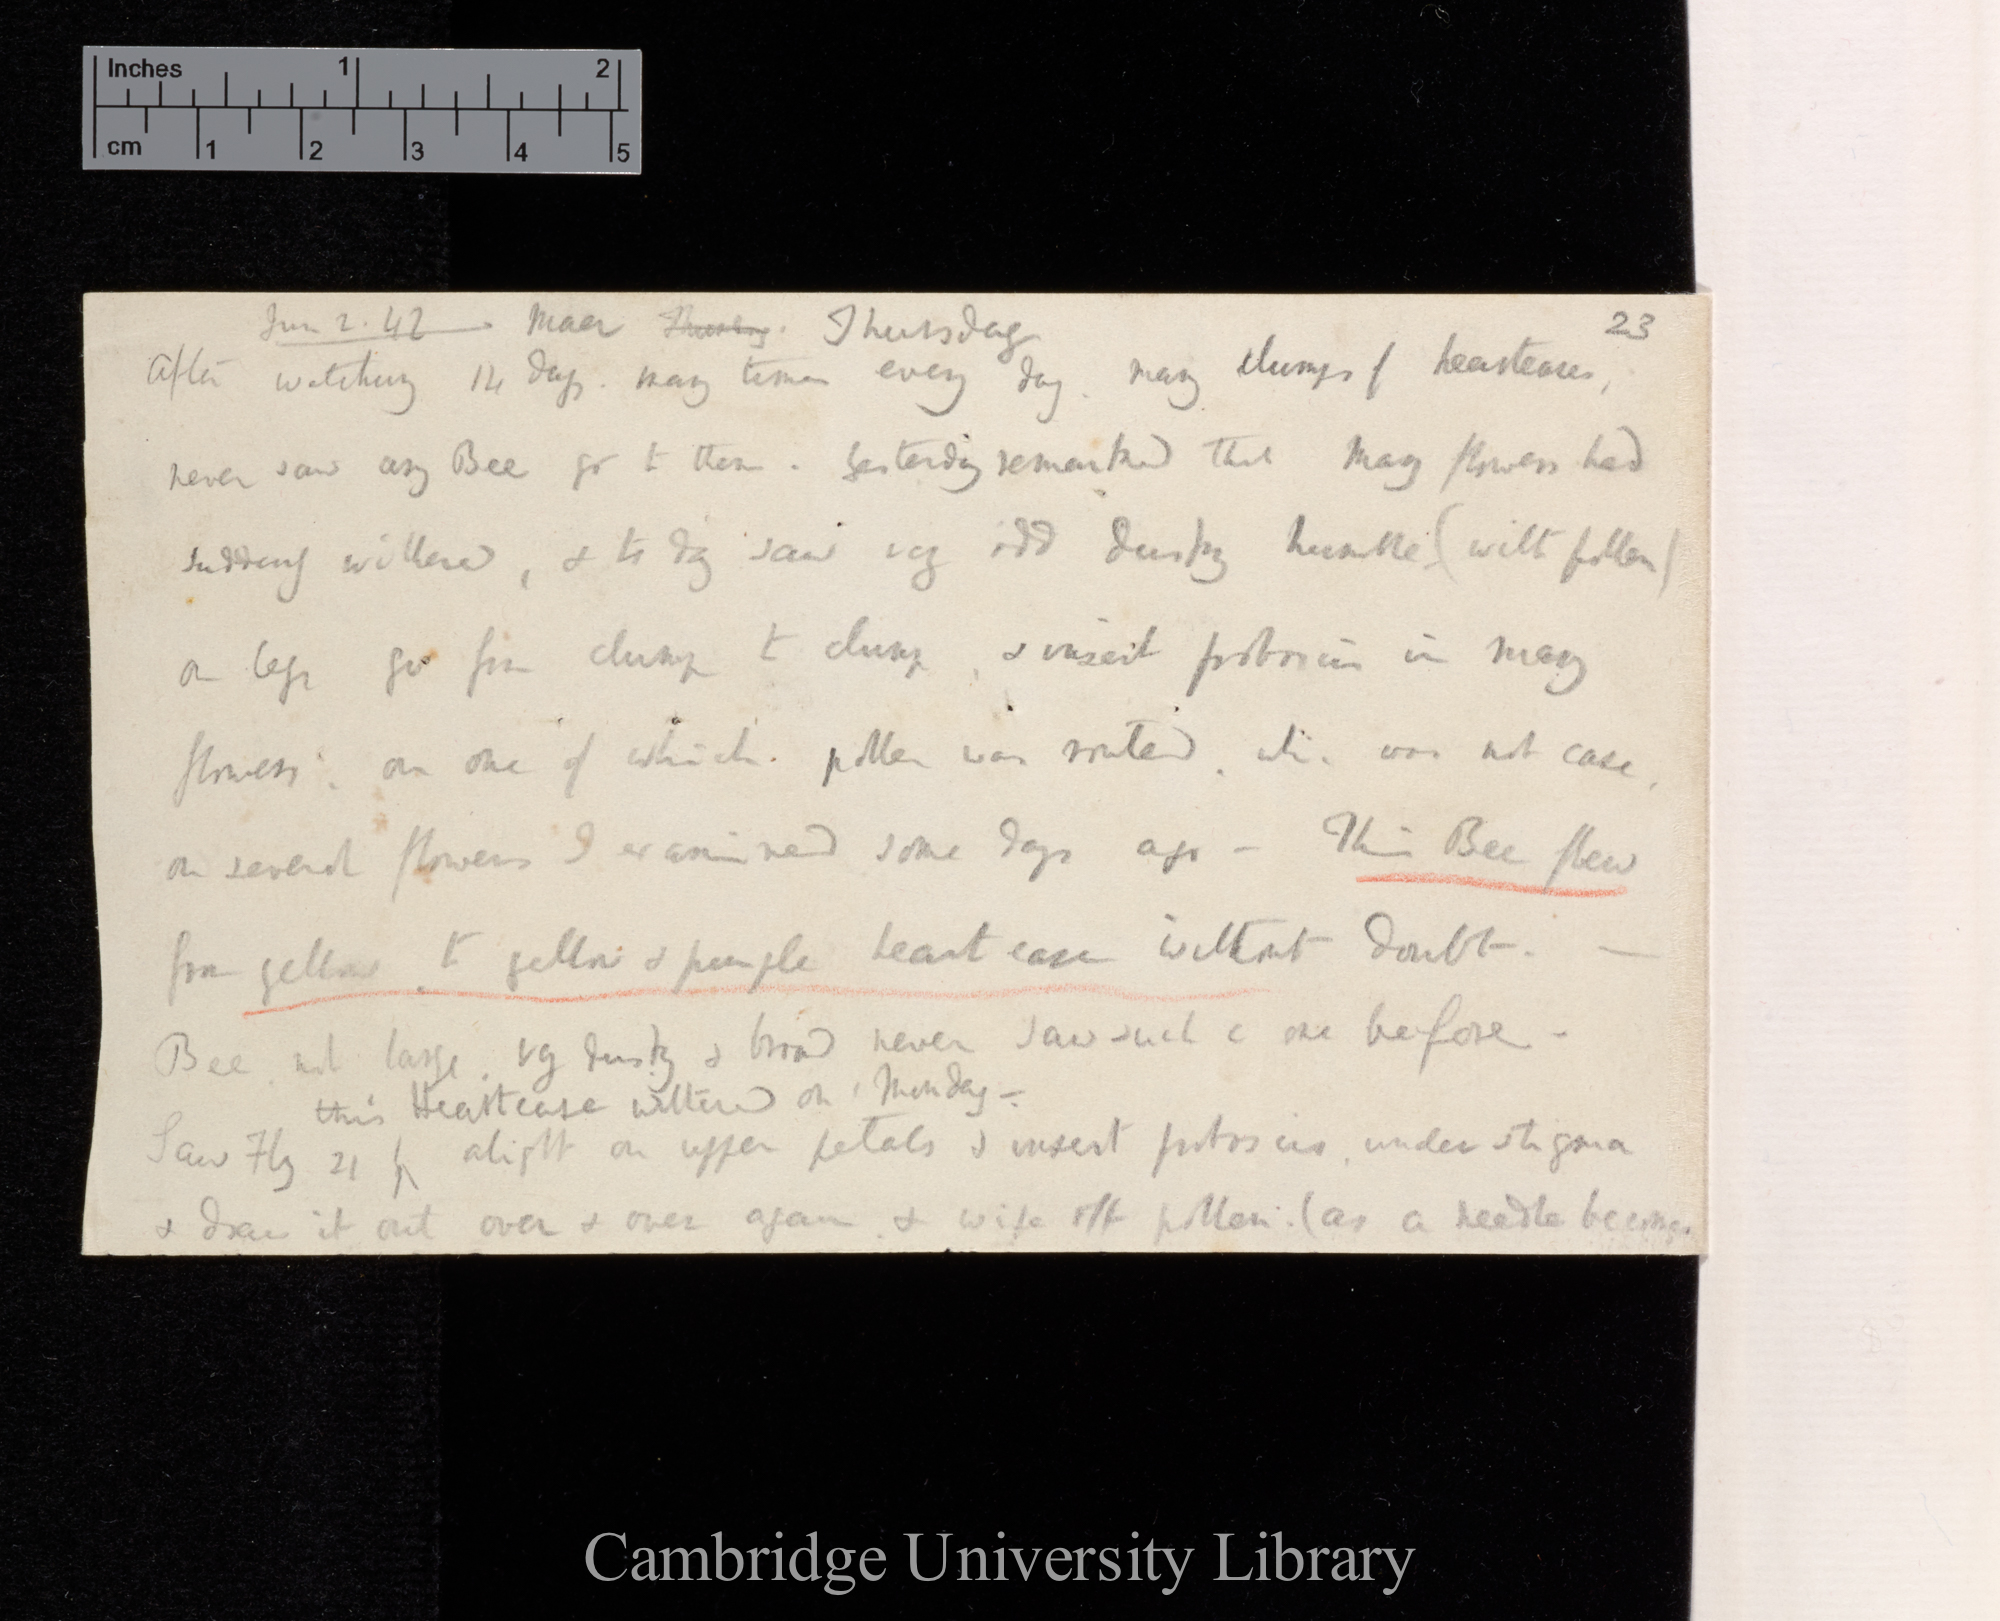 Inches 1 2
cm 1 2 3 4 5
23
Jun 2. 42 — Maer Thursday. Thursday
After watching 14 days. many times every day. many clumps of heartcases,
never saw any Bee go to them. Yesterday remarked that many flowers had
suddenly withered, & to day saw vy odd dusky humble (with pollen)
on legs go from clump to clump, & insert proboscis in many
flowers. on one of which. pollen was routed. whi. was not case,
on several flowers I examined some days ago — This Bee flew
from yellow, to yellow & purple heartcase without doubt. —
Bee not large, vy dusky & broad never saw such a one before —
this Heartcase withered on Monday —
Saw Fly 21 alight on upper petals & insert proboscis, under stigma
& draw it out over & over again & wipe off pollen. (as a needle becomes
Cambridge University Library